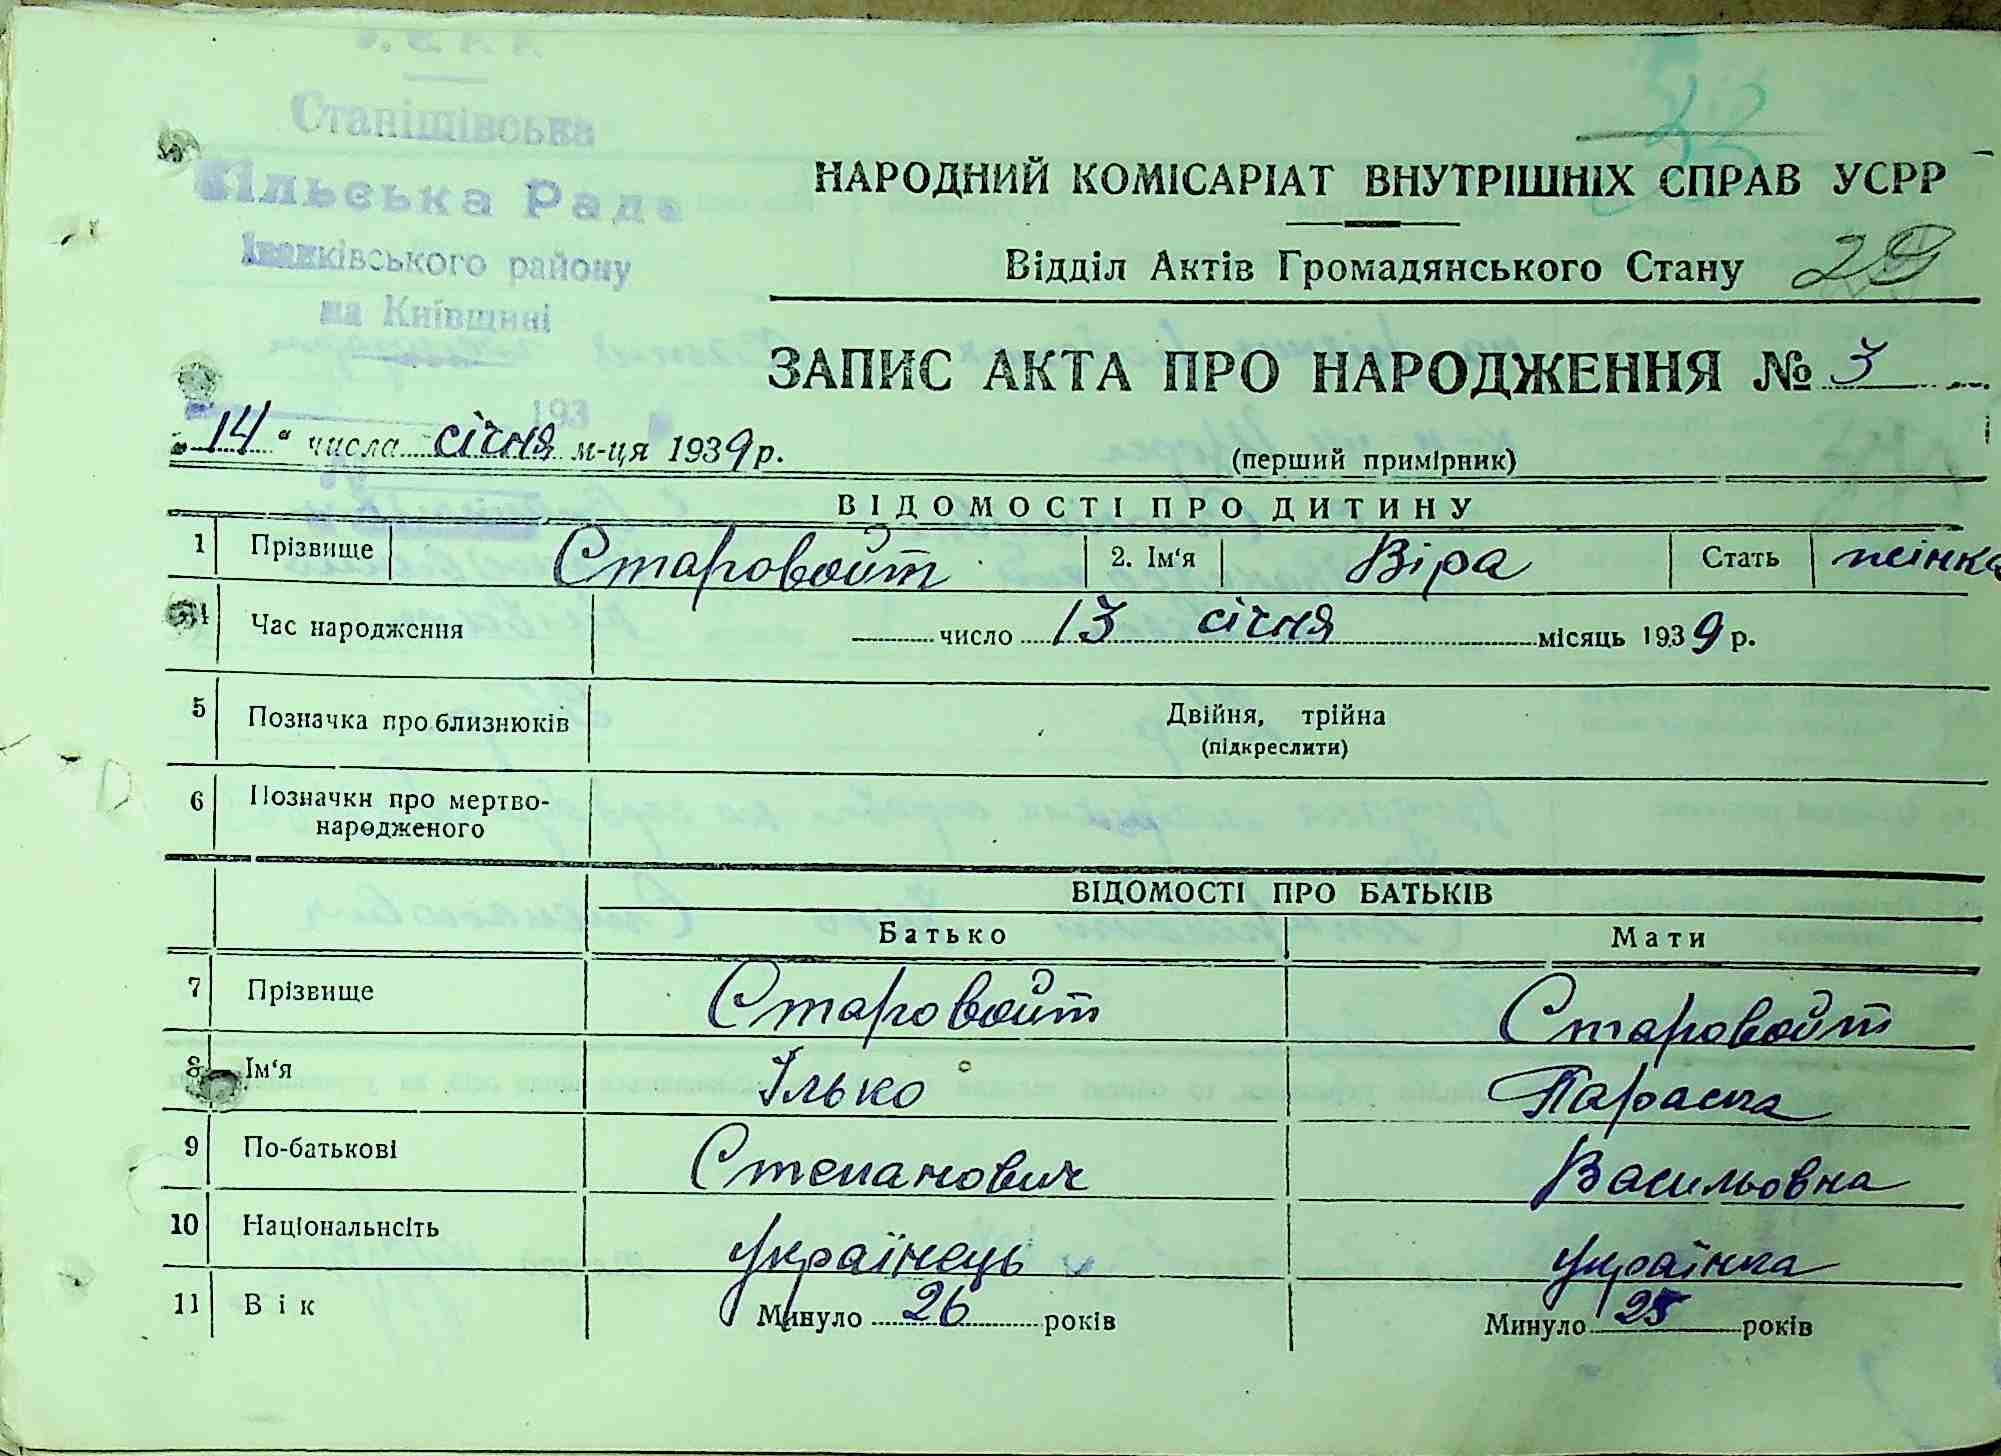 Станішівська
Сільська Рада
Іванківського району
на Київщині
193
НАРОДНИЙ КОМІСАРІАТ ВНУТРІШНІХ СПРАВ УСРР
Відділ Актів Громадянського Стану 29
ЗАПИС АКТА ПРО НАРОДЖЕННЯ № 3
„14“ числа січня м-ця 1939 р.
(перший примірник)
ВІДОМОСТІ ПРО ДИТИНУ
1 Прізвище Старовойт 2. Ім‘я Віра Стать жінка
Час народження число 13 січня місяць 1939 р.
5 Позначка про близнюків Двійня, трійна
(підкреслити)
6 Позначки про мертво-
народженого
ВІДОМОСТІ ПРО БАТЬКІВ
Батько Мати
7 Прізвище Старовойт Старовойт
8 Ім‘я Ілько Параска
9 По-батькові Степанович Васильовна
10 Національнсіть Українець Українка
11 Вік Минуло 26 років Минуло 25 років